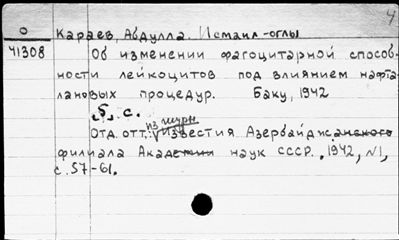 4
О Караев, Абдулла. Исмаил-оглы
41308 Об изменении фагоцитарной способ-
ности лейкоцитов под влиянием нафта-
лановых процедур. Баку, 1942
5 с.
из журн.
Отд. отт.: Известия Азербайджанского
филиала Академии наук СССР, 1942, N1,
с. 57-61.